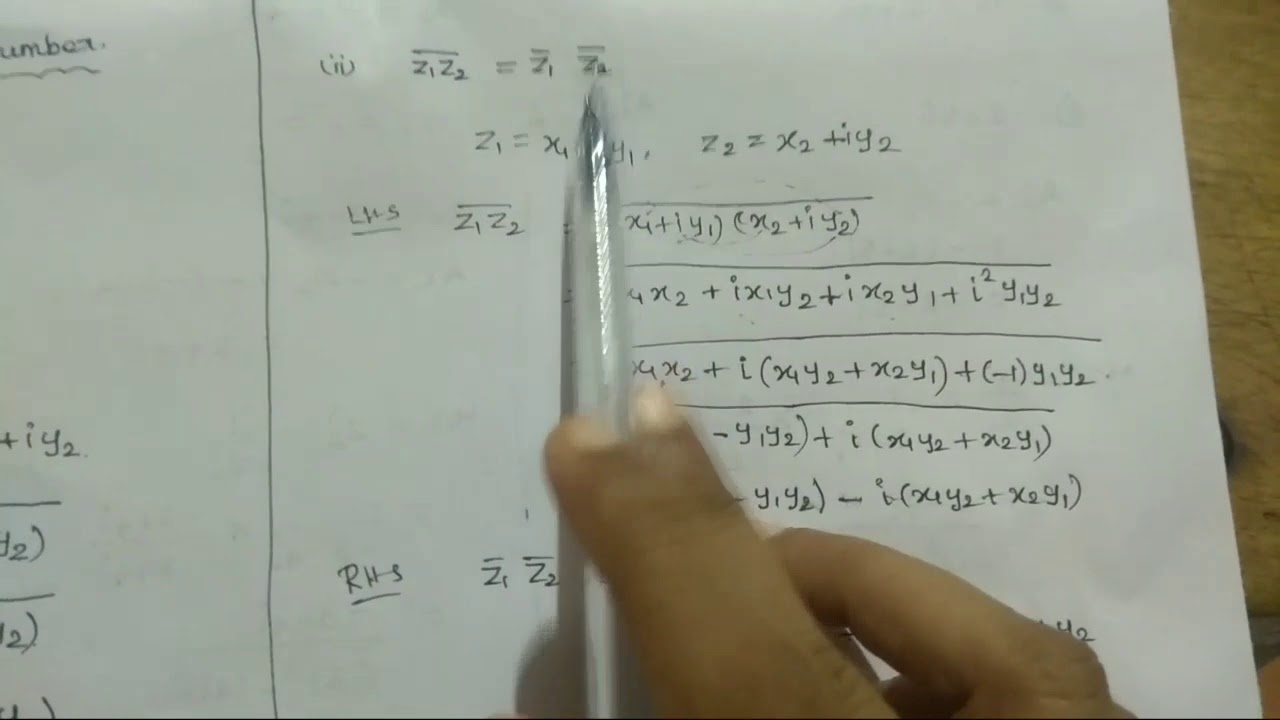 umber.
+iy₂.
y₂)
y₂)
(ii) \overline{z₁z₂} = \overline{z₁} \overline{z₂}
z₁ = x₁ y₁, z₂ = x₂ + iy₂
LHS \overline{z₁z₂} = \overline{x₁+iy₁)(x₂+iy₂)}
\overline{x₁x₂ + ix₁y₂ + ix₂y₁ + i²y₁y₂}
\overline{x₁x₂ + i(x₁y₂+x₂y₁) + (-1)y₁y₂}
\overline{-y₁y₂) + i(x₁y₂+x₂y₁)}
-y₁y₂) - i(x₁y₂+x₂y₁)
RHS \overline{z₁} \overline{z₂}
y₂